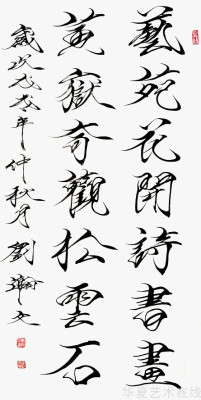 藝苑花開詩書畫
黄嶽奇觀松雲石
歲次戊戌年仲秋月劉瀚文
华夏艺术在线